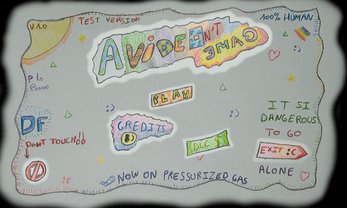 V1.0
TEST VERSION
100% HUMAN
A VIDEO
GAME
P to
Pause
PLAY
DF
CREDITS
DLC
IT SI
DANGEROUS
TO GO
EXIT :C
ALONE
DON'T TOUCH!!
NOW ON PRESSURIZED GAS